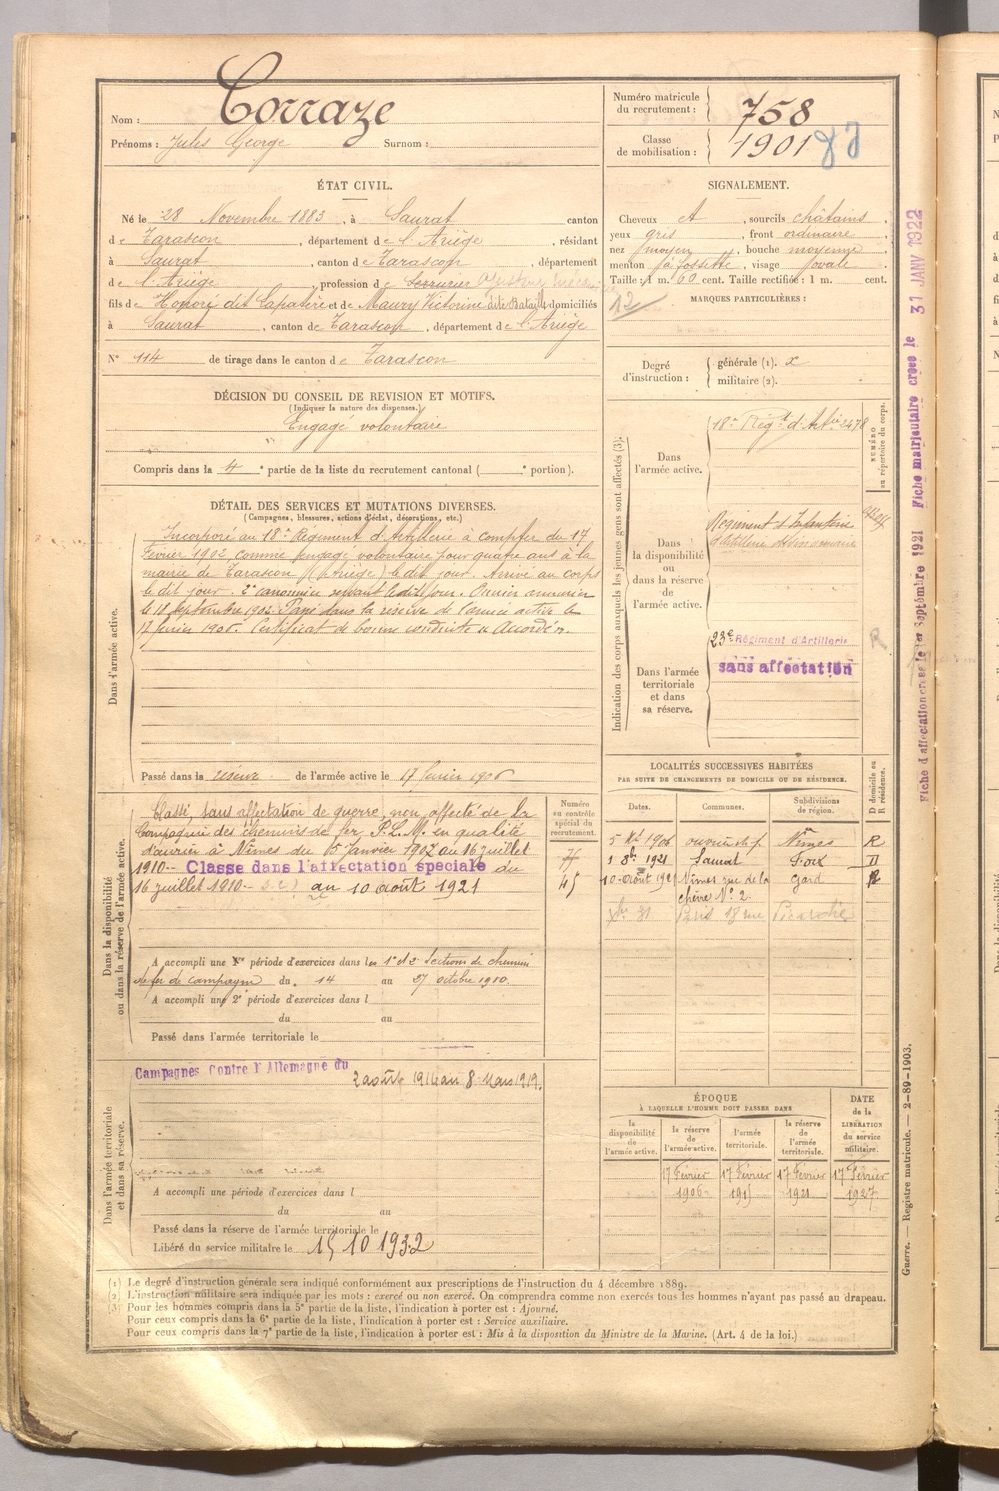 Nom : Corraze
Prénoms : Jules George Surnom :
Numéro matricule du recrutement : 758
Classe de mobilisation : 1901
ÉTAT CIVIL.
Né le 28 Novembre 1883, à Saurat canton
de Tarascon, département de l'Ariège, résidant
à Saurat, canton de Tarascon, département
de l'Ariège, profession de Serrurier
fils de Honoré dit Lapatère et de Maury Victorine dite Bataillé domiciliés
à Saurat, canton de Tarascon, département de l'Ariège
N° 114 de tirage dans le canton de Tarascon
SIGNALEMENT.
Cheveux et, sourcils châtains,
yeux gris, front ordinaire,
nez moyen, bouche moyenne
menton à fossette, visage ovale.
Taille : 1 m. 60 cent. Taille rectifiée : 1 m. cent.
MARQUES PARTICULIÈRES :
Degré d'instruction : générale (1). x
militaire (2).
DÉCISION DU CONSEIL DE REVISION ET MOTIFS.
(Indiquer la nature des dispenses.)
Engagé volontaire
Compris dans la 4e partie de la liste du recrutement cantonal ( e portion).
DÉTAIL DES SERVICES ET MUTATIONS DIVERSES.
(Campagnes, blessures, actions d'éclat, décorations, etc.)
Dans l'armée active.
Incorporé au 18e Régiment d'Artillerie à compter du 17
février 1902, comme engagé volontaire pour quatre ans à la
mairie de Tarascon (Ariège) le dit jour. Arrivé au corps
le dit jour. 2e canonnier servant ledit jour. Ouvrier
le 18 septembre 1902. Passé dans la réserve de l'armée active le
17 février 1906. Certificat de bonne conduite "Accordé".
Passé dans la réserve de l'armée active le 17 février 1906
Indication des corps auxquels les jeunes gens sont affectés (3).
NUMÉRO au répertoire du corps.
Dans l'armée active.
18e Régt d'Artie 2478
Dans la disponibilité ou dans la réserve de l'armée active.
Régiment d'Infanterie
d'Artillerie
Dans l'armée territoriale et dans sa réserve.
23e Régiment d'Artillerie R
sans affectation
Dans la disponibilité ou dans la réserve de l'armée active.
Classé, sans affectation de guerre, non affecté de la
Compagnie des chemins de fer P.L.M. en qualité
d'ouvrier à Nîmes du 15 janvier 1907 au 16 juillet
1910 -- Classé dans l'affectation spéciale du
16 juillet 1910 -- au 10 août 1921
A accompli une 1re période d'exercices dans les 1e et 2e Sections de chemins
de fer de campagne du 14 au 27 octobre 1910.
A accompli une 2e période d'exercices dans l
du au
Passé dans l'armée territoriale le
Numéro au contrôle spécial du recrutement.
45
LOCALITÉS SUCCESSIVES HABITÉES
PAR SUITE DE CHANGEMENTS DE DOMICILE OU DE RÉSIDENCE.
D domicile ou R résidence.
Dates. Communes. Subdivisions de région.
Nîmes R
1 8bre 1921 Saurat Foix D
10 août 1921 Nîmes rue de la Gard R
chèvre N° 2.
Dans l'armée territoriale et dans sa réserve.
Campagnes Contre l'Allemagne du
2 août 1914 au 8 Mars 1919.
A accompli une période d'exercices dans l
du au
Passé dans la réserve de l'armée territoriale le
Libéré du service militaire le 15 10 1932
ÉPOQUE
À LAQUELLE L'HOMME DOIT PASSER DANS
la disponibilité de l'armée active.
la réserve de l'armée active.
l'armée territoriale.
la réserve de l'armée territoriale.
DATE de la LIBÉRATION du service militaire.
17 Février 17 Février 17 Février 17 Février
1906 1915 1921 1927
(1) Le degré d'instruction générale sera indiqué conformément aux prescriptions de l'instruction du 4 décembre 1889.
(2) L'instruction militaire sera indiquée par les mots : exercé ou non exercé. On comprendra comme non exercés tous les hommes n'ayant pas passé au drapeau.
(3) Pour les hommes compris dans la 5e partie de la liste, l'indication à porter est : Ajourné.
Pour ceux compris dans la 6e partie de la liste, l'indication à porter est : Service auxiliaire.
Pour ceux compris dans la 7e partie de la liste, l'indication à porter est : Mis à la disposition du Ministre de la Marine. (Art. 4 de la loi.)
Guerre. — Registre matricule. — 2-89-1903.
Fiche d'affectation créée le 1er Septembre 1921 Fiche matriculaire créée le 31 JANV 1922